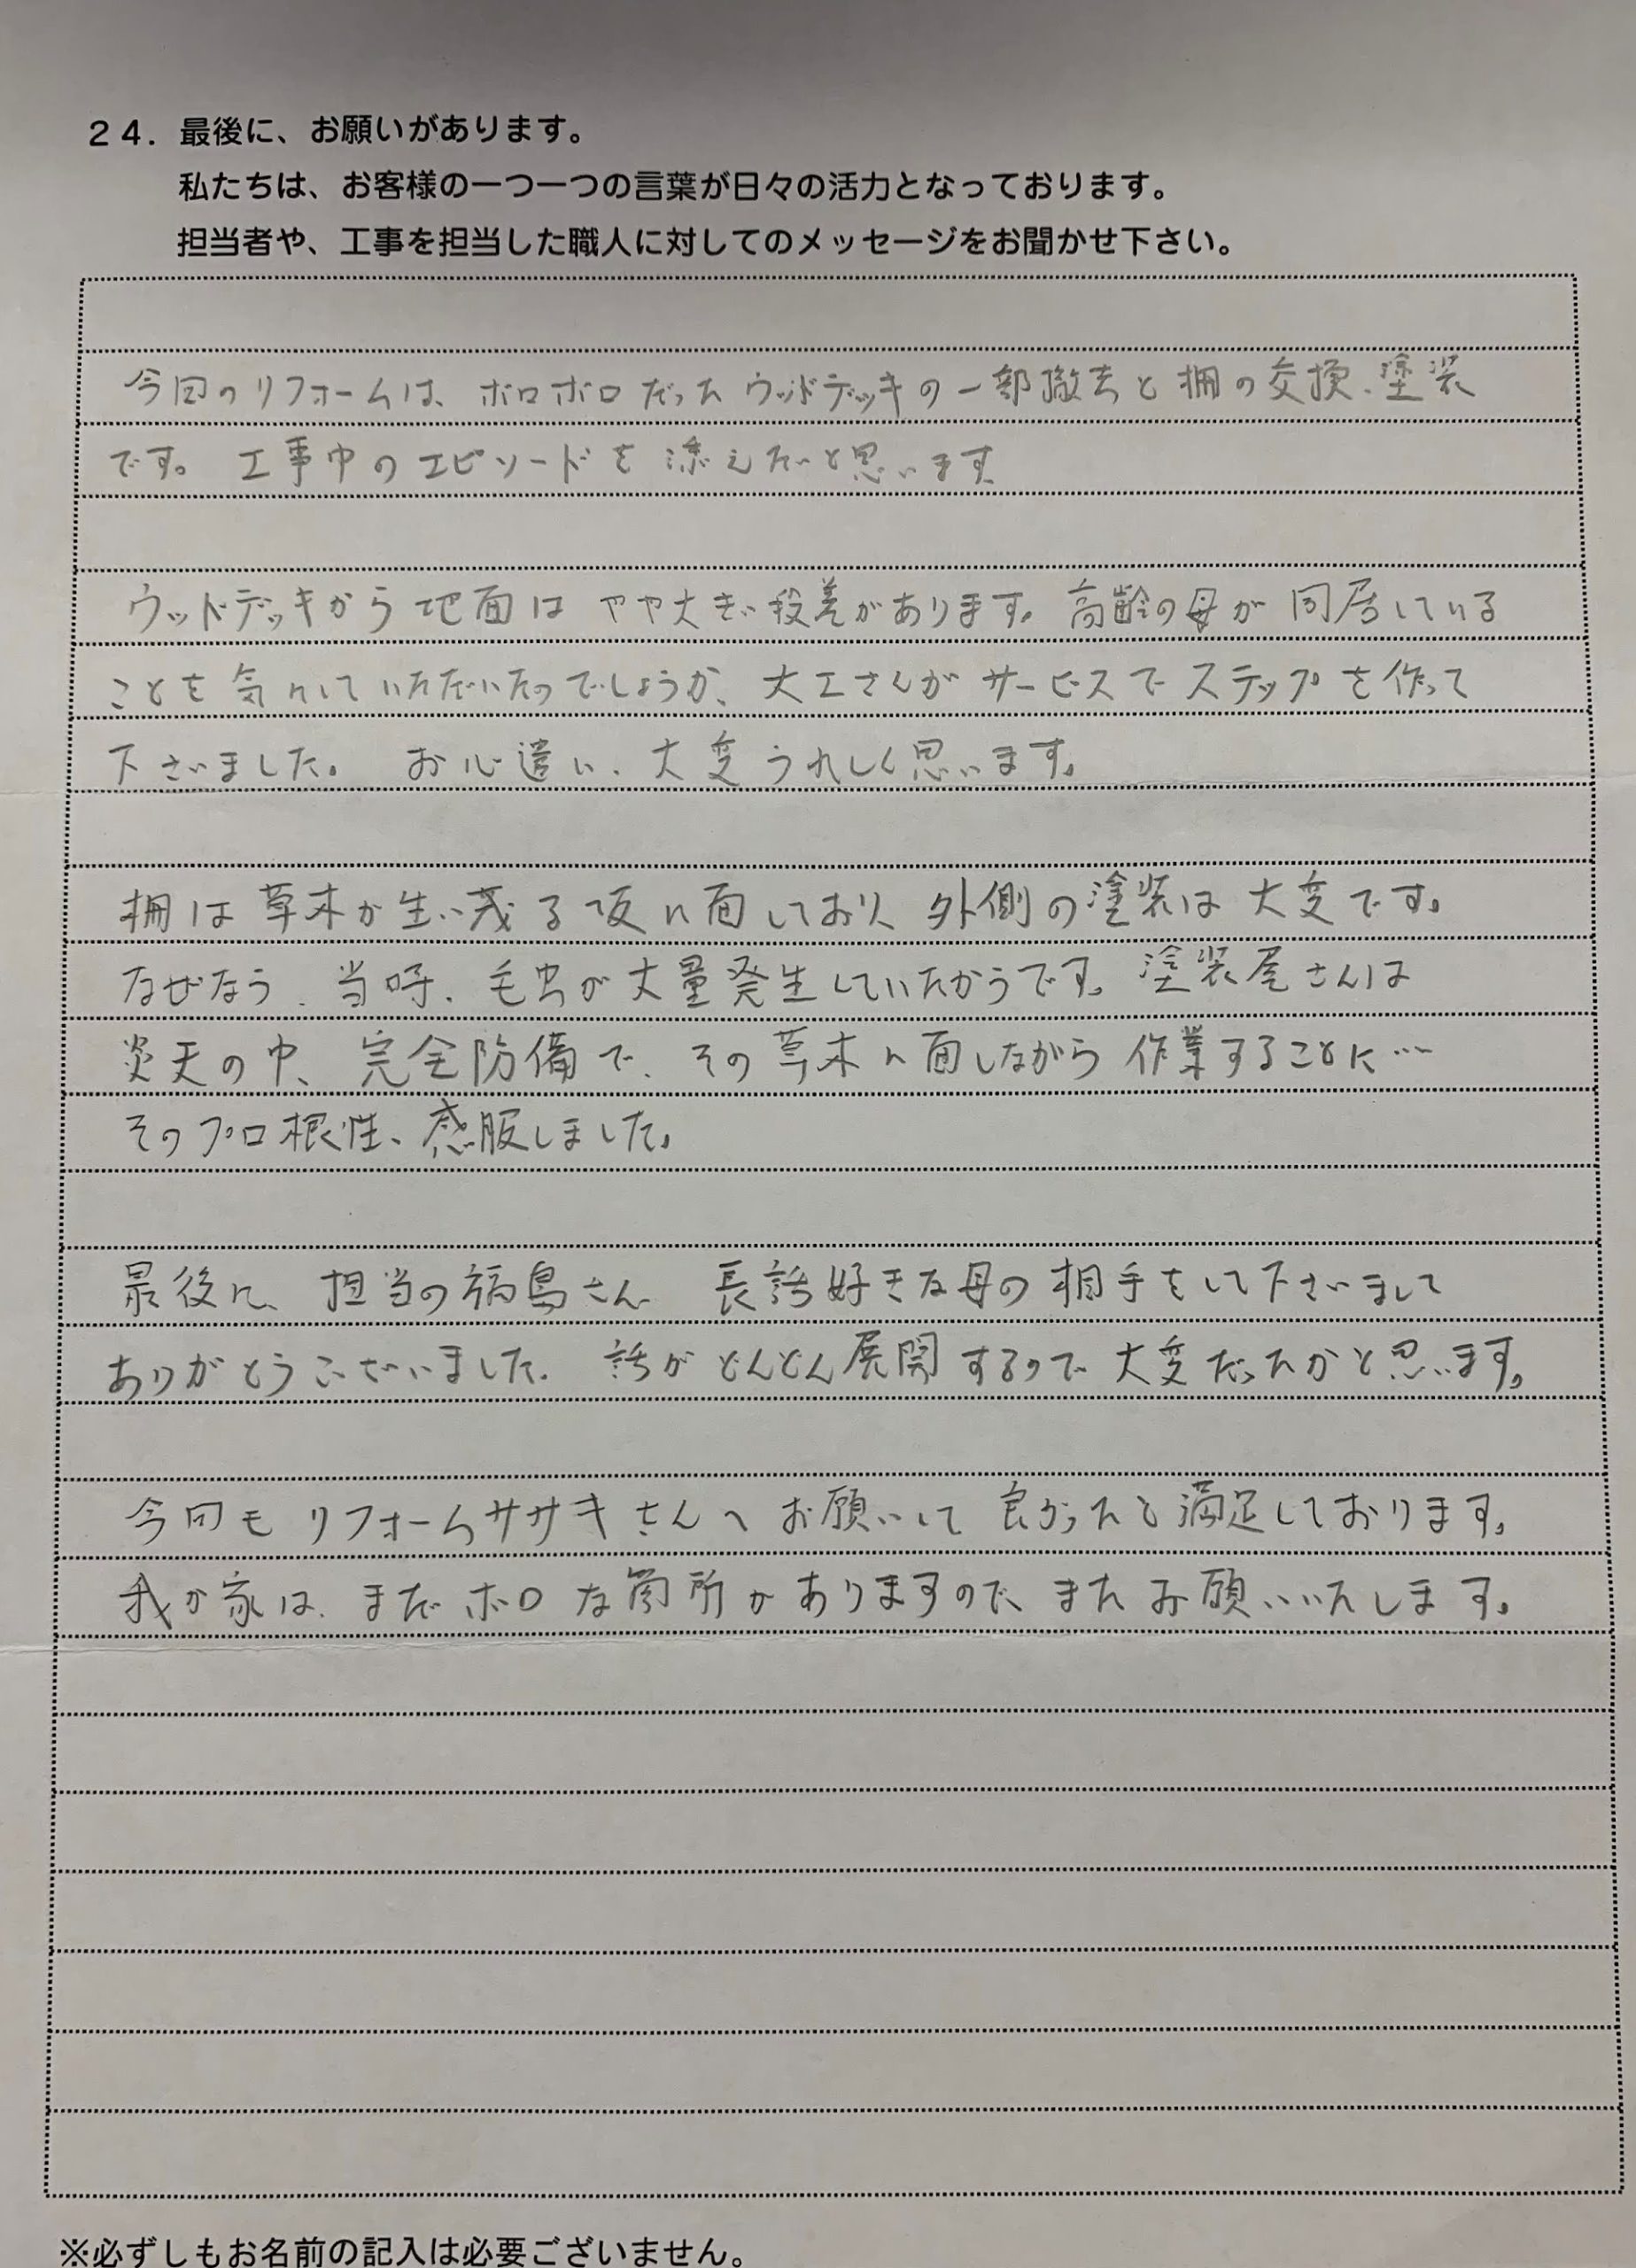 ２４．最後に、お願いがあります。
私たちは、お客様の一つ一つの言葉が日々の活力となっております。
担当者や、工事を担当した職人に対してのメッセージをお聞かせ下さい。
今回のリフォームは、ボロボロだったウッドデッキの一部撤去と柵の交換、塗装
です。工事中のエピソードを添えたいと思います
ウッドデッキから地面はやや大きい段差があります。高齢の母が同居している
ことを気にしていただいたのでしょうか、大工さんがサービスでステップを作って
下さいました。お心遣い、大変うれしく思います。
柵は草木が生い茂る坂に面しており、外側の塗装は大変です。
なぜなら、当時、毛虫が大量発生していたからです。塗装屋さんは
炎天の中、完全防備で、その草木に面しながら作業することに…
そのプロ根性、感服しました。
最後に、担当の福島さん 長話好きな母の相手をして下さいまして
ありがとうございました。話がどんどん展開するので大変だったかと思います。
今回もリフォームササキさんへお願いして良かったと満足しております。
我が家は、まだボロな箇所がありますので、またお願いいたします。
※必ずしもお名前の記入は必要ございません。